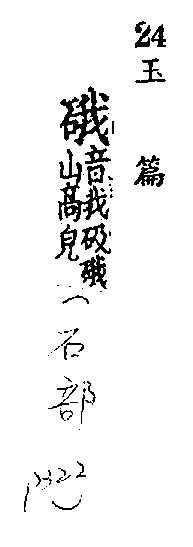 24玉篇
硪音我砐硪山高皃(石部
322)